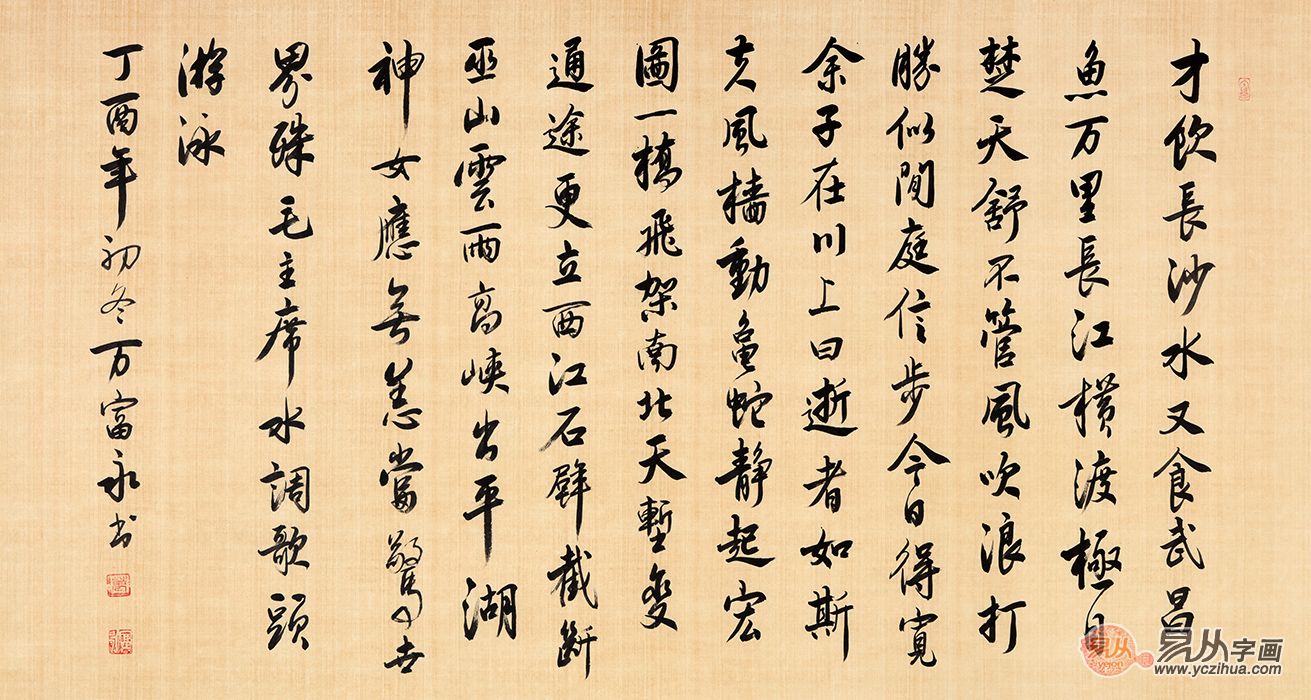 才飲長沙水又食武昌
魚万里長江橫渡極目
楚天舒不管風吹浪打
勝似閒庭信步今日得寬
余子在川上曰逝者如斯
夫風檣動龜蛇静起宏
圖一橋飛架南北天塹變
通途更立西江石壁截斷
巫山雲雨高峽出平湖
神女應無恙當驚世
界殊毛主席水調歌頭
游泳
丁酉年初冬万富永书
易从字画
yejon
www.yczihua.com